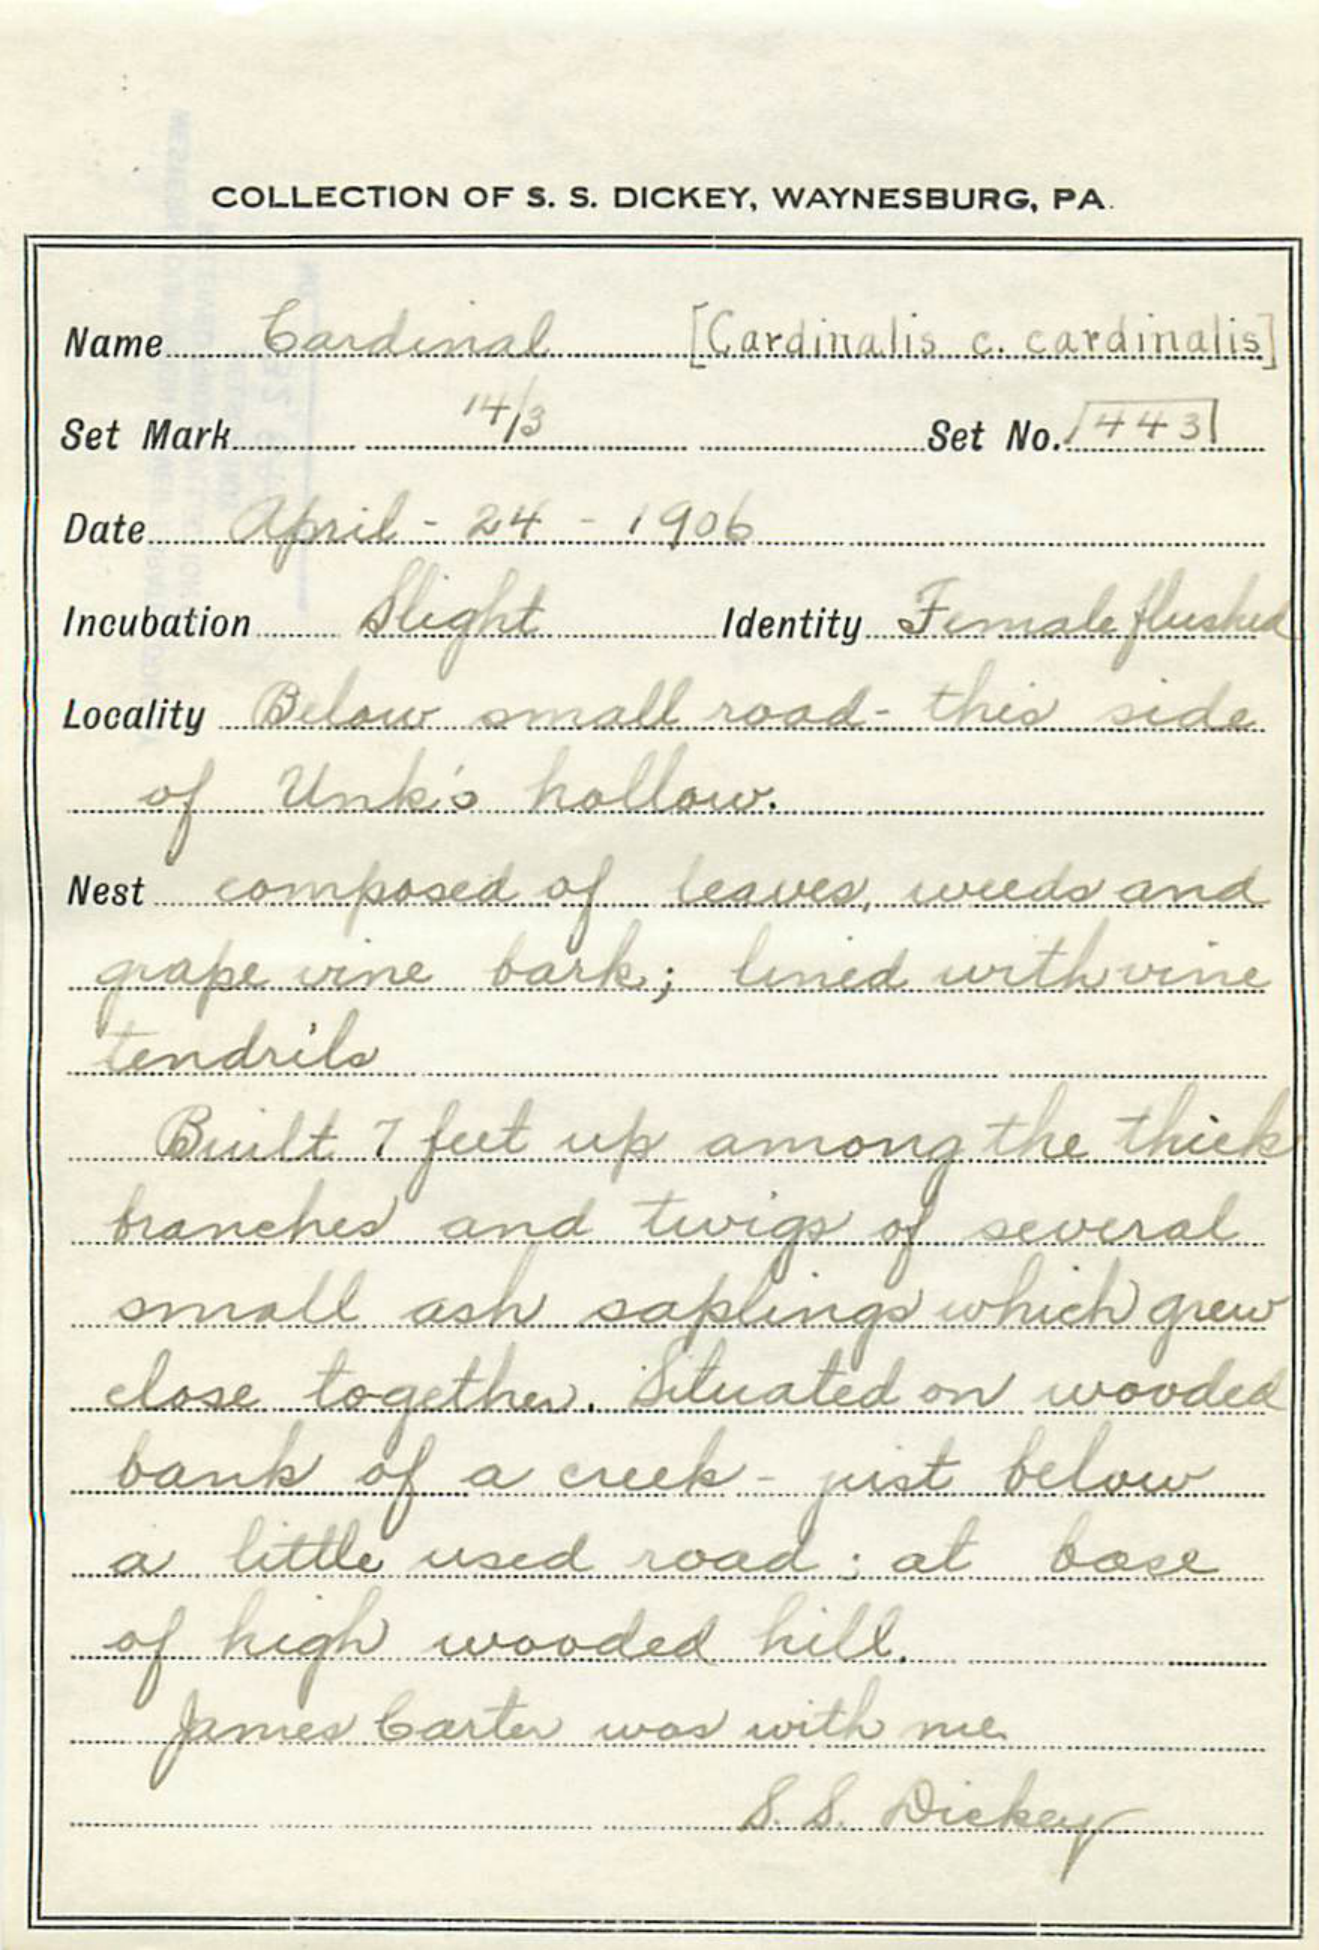 COLLECTION OF S. S. DICKEY, WAYNESBURG, PA.
Name Cardinal [Cardinalis c. cardinalis]
Set Mark 14/3 Set No. 443
Date April - 24 - 1906
Incubation Slight Identity Female flushed
Locality Below small road - this side
of Unk's hollow.
Nest composed of leaves, weeds and
grape vine bark; lined with vine
tendrils
Built 7 feet up among the thick
branches and twigs of several
small ash saplings which grew
close together. Situated on wooded
bank of a creek - just below
a little used road; at base
of high wooded hill.
James Carter was with me.
S. S. Dickey